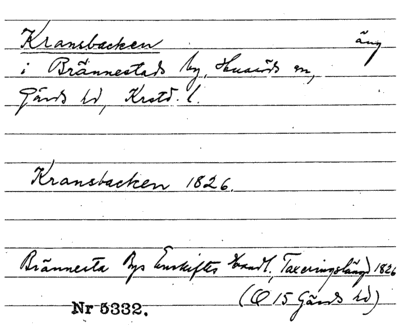 Kransbacken äng
i Brännestads by, Huaröds sn,
Gärds hd, Krstd. l.
Kransbacken 1826.
Brännesta Bys Enskiftes Handl., Taxeringslängd 1826
(Q 15 Gärds hd)
Nr 5332.